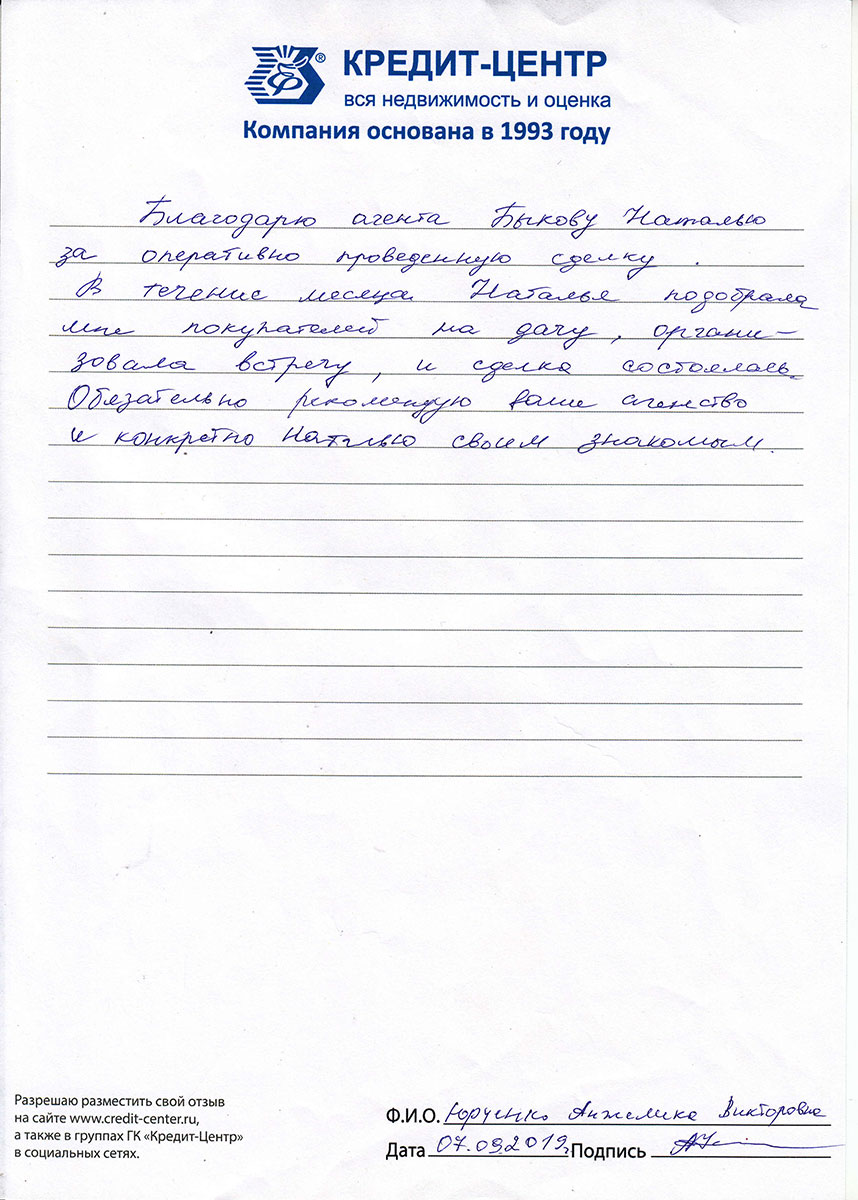 КРЕДИТ-ЦЕНТР
вся недвижимость и оценка
Компания основана в 1993 году
Благодарю агента Быкову Наталью
за оперативно проведенную сделку.
В течение месяца Наталья подобрала
мне покупателей на дачу, органи-
зовала встречу, и сделка состоялась.
Обязательно рекомендую ваше агенство
и конкретно Наталью своим знакомым.
Разрешаю разместить свой отзыв
на сайте www.credit-center.ru,
а также в группах ГК «Кредит-Центр»
в социальных сетях.
Ф.И.О. Юрченко Анжелика Викторовна
Дата 07.09.2019г Подпись